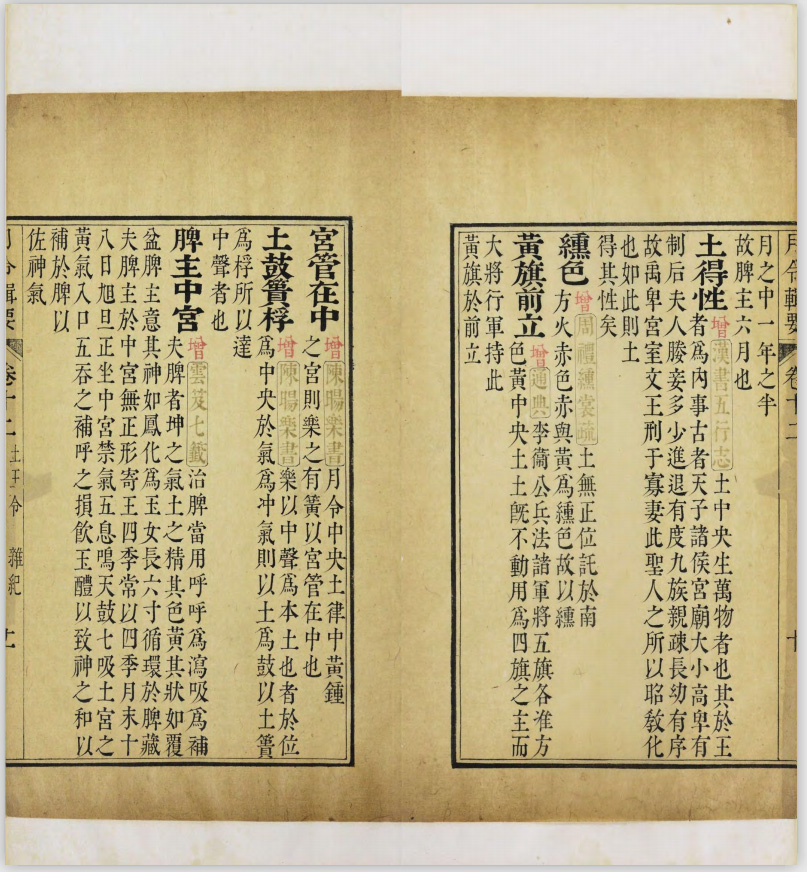 月令輯要 卷十二 十
月之中一年之半
故脾主六月也
土得性 增漢書五行志土中央生萬物者也其於王
者爲內事古者天子諸侯宮廟大小高卑有
制后夫人媵妾多少進退有度九族親疎長幼有序
故禹卑宮室文王刑于寡妻此聖人之所以昭敎化
也如此則土
得其性矣
纁色 增周禮纁裳疏土無正位託於南
方火赤色赤與黃爲纁色故以纁
黃旗前立 增通典李衞公兵法諸軍將五旗各准方
色黃中央土土旣不動用爲四旗之主而
大將行軍持此
黃旗於前立
宮管在中 增陳暘樂書月令中央土律中黃鍾
之宮則樂之有簧以宮管在中也
土鼓蕢桴 增陳暘樂書樂以中聲爲本土也者於位
爲中央於氣爲冲氣則以土爲鼓以土蕢
爲桴所以達
中聲者也
脾主中宮 增雲笈七籤治脾當用呼呼爲瀉吸爲補
夫脾者坤之氣土之精其色黃其狀如覆
盆脾主意其神如鳳化爲玉女長六寸循環於脾藏
夫脾主於中宮無正形寄王四季常以四季月末十
八日旭旦正坐中宮禁氣五息鳴天鼓七吸土宮之
黃氣入口五吞之補呼之損飮玉醴以致神之和以
補於脾以
佐神氣
月令輯要 卷十二 土王令 雜紀 十一